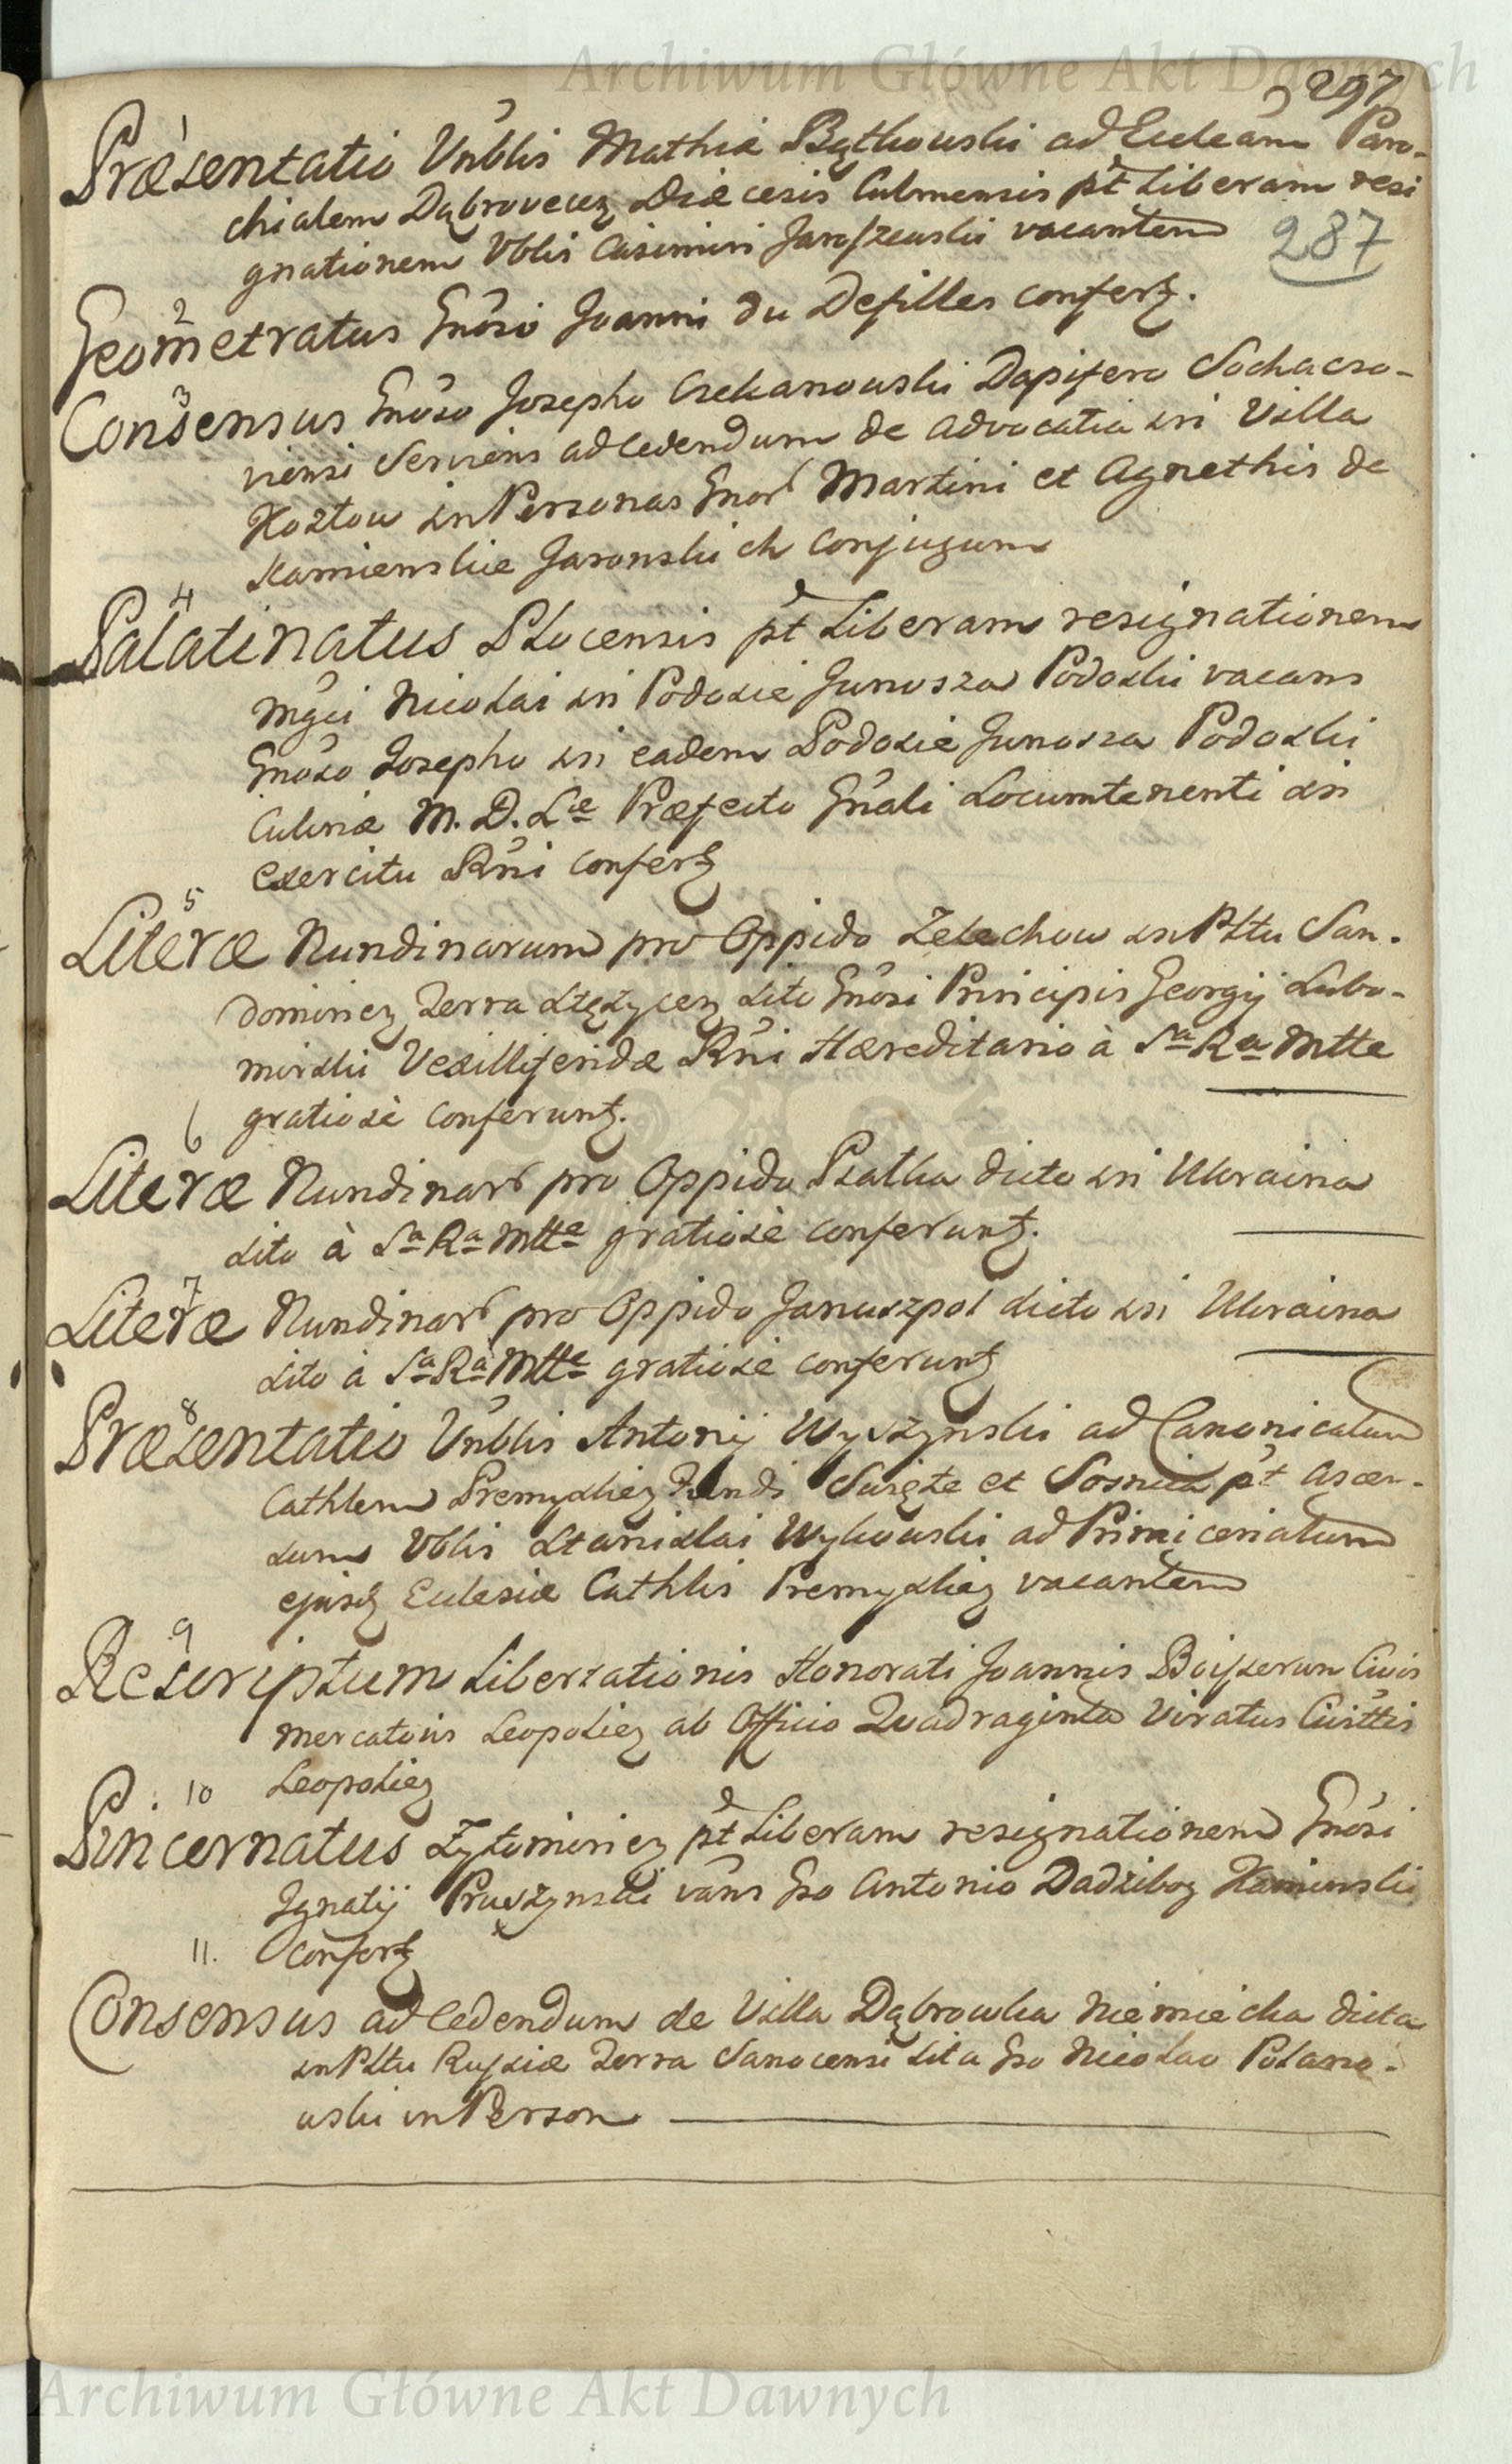 Archiwum Główne Akt Dawnych
297
1
Præsentatio Vnblis Mathiæ Bątkowski ad Eccleam Paro-
chialem Dąbrovecez Diæcesis Culmensis pt Liberam resi
gnationem Vblis Casimiri Jaroszewski vacantem
287
2
Geometratus Gnoso Joanni du Defilles confertz.
3
Consensus Gnoso Josepho Czekanowski Dapifero Sochaczo-
viensi Serviens ad cedendum de advocatia in Villa
Kozłow in Personas Gnor Martini et Agnethis de
Kamienskie Jaronskich Conjugum
4
Palatinatus Plocensis pt Liberam resignationem
Mgci Nicolai in Podosie Junosza Podoski vacans
Gnoso Josepho in eadem Podosie Junosza Podoski
Culinæ M. D. Læ Præfecto Gnali Locumtenenti in
exercitu Rni confertz
5
Literæ Nundinarum pro Oppido Zelechow in Pltu San-
domiriez Terra Stężycez sito Gnosi Principis Georgij Lubo-
mirski Vexilliferidæ Rni Hæreditario à Sa Ra Mtte
gratiose conferuntz.
6
Literæ Nundinar pro Oppido Psatka dicto in Ukraina
sito à Sa Ra Mtte gratiosè conferuntz.
7
Literæ Nundinar pro Oppido Januszpol dicto in Ukraina
sito à Sa Ra Mtte gratiosè conferuntz
8
Præsentatio Vnblis Antonij Wyszynski ad Canonicatum
Cathlem Premysliez Fundi Święte et Sosnica pt Ascen-
sum Vblis Stanislai Wykowski ad Primiceriatum
ejusdz Eclesiæ Cathlis Premysliez vacantem
9
Rescriptum Libertationis Honorati Joannis Civis
Mercatoris Leopoliez ab Officio Quadraginta Viratus Civittis
Leopoliez
10
Pincernatus Zytomiriez pt Liberam resignationem Gnosi
Ignatij Pruszynski vans Gso Antonio Dadzibog Kaminski
confertz
11.
Consensus ad Cedendum de Villa Dąbrowka Niemiecka dicta
in Pltu Russiæ Terra Sanocensi sita Gso Nicolao Polano-
wski in Person
Archiwum Główne Akt Dawnych